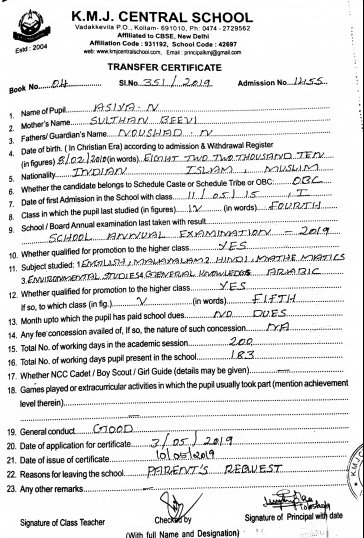 K.M.J. CENTRAL SCHOOL
Vadakkevila P.O., Kollam- 691010, Ph: 0474 - 2729562
Affiliated to CBSE, New Delhi
Affiliation Code : 931192, School Code : 42697
web: www.kmjcentralschool.com, Email : principalkmj@gmail.com
Estd : 2004
TRANSFER CERTIFICATE
Book No. 04 Sl.No. 351/2019 Admission No. 1455
1. Name of Pupil ASIYA. N
2. Mother's Name SULTHAN BEEVI
3. Fathers/ Guardian's Name NOUSHAD. N
4. Date of birth. ( In Christian Era) according to admission & Withdrawal Register
(in figures) 8/02/2010 (in words). EIGHT TWO TWO THOUSAND TEN
5. Nationality INDIAN ISLAM, MUSLIM
6. Whether the candidate belongs to Schedule Caste or Schedule Tribe or OBC: OBC
7. Date of first Admission in the School with class. 11/05/15, I
8. Class in which the pupil last studied (in figures) IV (in words) FOURTH
9. School / Board Annual examination last taken with result
SCHOOL ANNUAL EXAMINATION - 2019
10. Whether qualified for promotion to the higher class YES
11. Subject studied : 1 ENGLISH, MALAYALAM 2 HINDI, MATHEMATICS
3. ENVIRONMENTAL STUDIES, GENERAL KNOWLEDGE ARABIC
12. Whether qualified for promotion to the higher class YES
If so, to which class (in fig.) V (in words) FIFTH
13. Month upto which the pupil has paid school dues. NO DUES
14. Any fee concession availed of, If so, the nature of such concession NA
15. Total No. of working days in the academic session 200
16. Total No. of working days pupil present in the school 183
17. Whether NCC Cadet / Boy Scout / Girl Guide (details may be given) —
18. Games played or extracurricular activities in which the pupil usually took part (mention achievement
level therein). —
19. General conduct GOOD
20. Date of application for certificate 3/05/2019
21. Date of issue of certificate 10/05/2019
22. Reasons for leaving the school PARENT'S REQUEST
23. Any other remarks —
Signature of Class Teacher
Checked by
(With full Name and Designation)
Signature of Principal with date
K.M.J.